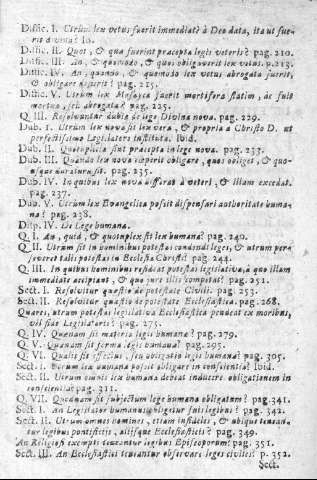 Diffic. I. Utrum lex vetus fuerit immediatè à Deo data, ita ut fue-
rit divina? Io.
Diffic. II. Quot, & quæ fuerint præcepta legis veteris? pag. 210.
Diffic. III. An, & quomodo, & quos obligaverit lex vetus. p.213.
Diffic. IV. An, quando, & quomodo lex vetus abrogata fuerit,
& obligare desierit? pag. 215.
Diffic. V. Utrum lex Mosayca fuerit mortifera statim, ac fuit
mortua, seu abrogata? pag. 225.
Q. III. Resolvuntur dubia de lege Divina nova. pag. 229.
Dub. I. Utrum lex nova sit lex vera, & propria a Christo D. ut
perfectissimo Legislatore instituta. Ibid.
Dub. II. Quotuplicia sint præcepta in lege nova. pag. 233.
Dub. III. Quando lex nova cœperit obligare, quos obliget, & quo-
usque duratura sit. pag. 235.
Dub. IV. In quibus lex nova differat à veteri, & illam excedat.
pag. 237.
Dub. V. Utrum lex Evangelica possit dispensari authoritate huma-
na? pag. 238.
Disp. IV. De Lege humana.
Q. I. An, quid, & quotuplex sit lex humana? pag. 240.
Q. II. Utrum sit in hominibus potestas condendi leges, & utrum perse-
veret talis potestas in Ecclesia Christi? pag. 244.
Q. III. In quibus hominibus resideat potestas legislativa, à quo illam
immediatè accipiant, & quo jure illis competat? pag. 252.
Sect. I. Resolvitur quæstio de potestate Civili. pag. 253.
Sect. II. Resolvitur quæstio de potestate Ecclesiastica. pag. 268.
Quares, utrum potestas legislativa Ecclesiastica pendeat ex moribus,
vel fide Legislatoris? pag. 275.
Q. IV. Quænam sit materia legis humanæ? pag. 279.
Q. V. Quænam sit forma legis humanæ? pag. 295.
Q. VI. Qualis sit effectus, seu obligatio legis humanæ? pag. 305.
Sect. I. Utrum lex humana possit obligare in conscientia? Ibid.
Sect. II. Utrum omnis lex humana debeat inducere obligationem in
conscientia? pag. 311.
Q. VII. Quodnam sit subjectum lege humana obligatum? pag. 341.
Sect. I. An Legislator humanus obligetur suis legibus? pag. 342.
Sect. II. Utrum omnes homines, etiam infideles, & ubique tenean-
tur legibus pontificiis, aliisque Ecclesiasticis? pag. 349.
An Religiosi exempti teneantur legibus Episcoporum? pag. 351.
Sect. III. An Ecclesiastici teneantur observare leges civiles? p. 352.
Sect.